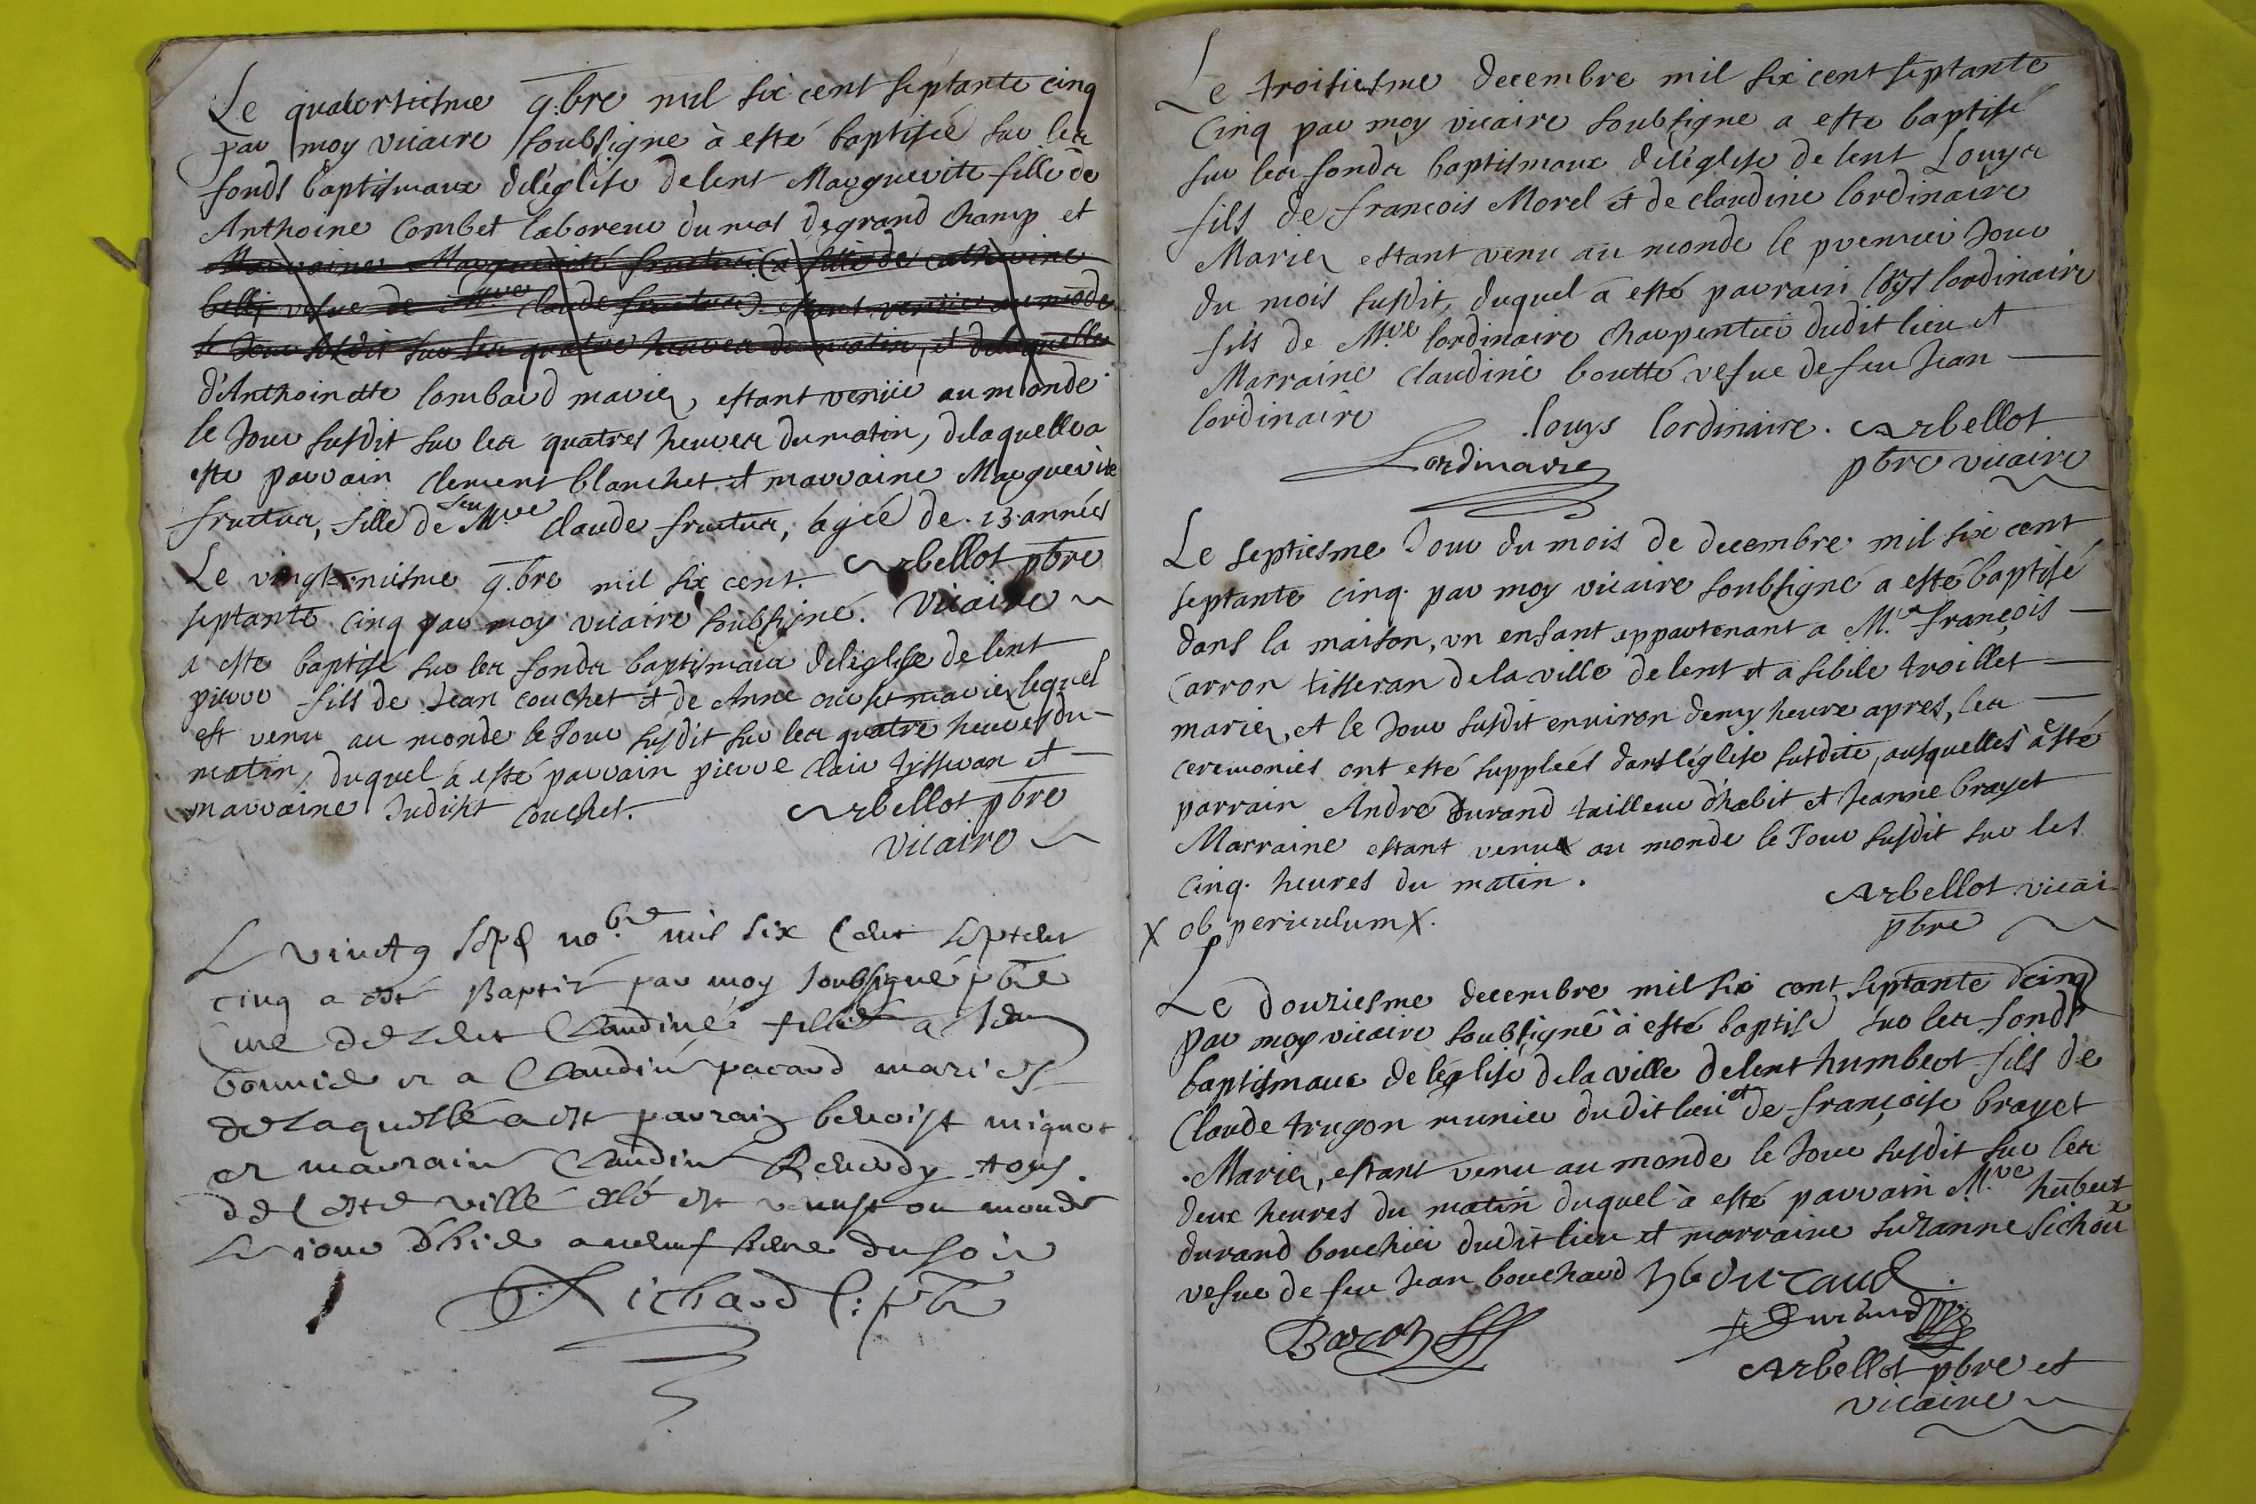 Le quatorsiesme 9.bre mil six cent septante cinq
par moy vicaire soubsigne à esté baptisée sur les
fonds baptismaux deléglise delent Marguerite fille de
Anthoine Combet laboreur du mas de grand champ et
Marraine Marguerite fructus (a fille de catherine
vefue de Mre Claude fructus) estant venüe au mõde
le Jour susdit sur les quatre heures du matin, et delaquelle
d'Anthoinette lombard mariez, estant venüe au monde
le Jour susdit sur les quatres heures du matin, delaquelle a
este parrain clement blanchet et marraine Marguerite
fructus, fille de feu Mre claude fructus, agée de 13 années
Arbellot pbre
vicaire
Le 9.bre mil six cent
septante cinq par moy vicaire soubsigné
a este baptisé sur les fonds baptismaux deléglise delent
pierre fils de Jean couchet et de Anne mariez lequel
est venu au monde le Jour susdit sur les quatre heures du
matin, duquel à esté parrain pierre clair tisseran et
marraine Judicht couchet.
Arbellot pbre
vicaire
Le vintg sept no.bre mil six cent septent
cinq a esté Baptisé par moy soubsigné pbre
Curé de Lent Claudine fille a Jean
bonnier et a Claudine pacaud mariés
de laquelle a est parrain benoist mignot
et marraine Claudine tous
de ceste ville elle est venust ou monde
le jour d'hier a neuf heure du soir
Richard C: pbr
Le troisiesme decembre mil six cent septante
Cinq par moy vicaire soubsigne a este baptisé
sur les fonds baptismaux deléglise de lent Louys
fils de françois Morel et de claudine lordinaire
Mariez estant venu au monde le premier Jour
du mois susdit, duquel a esté parrain loys lordinaire
fils de Mre lordinaire charpentier dudit lieu et
Marraine claudine boutte vefue de feu Jean
lordinaire
louys lordinaire. Arbellot
Lordinaire pbre vicaire
Le septiesme Jour du mois de decembre mil six cent
septante cinq par moy vicaire soubsigné a esté baptisé
dans la maison, un enfant appartenant a M.re françois
Carron tisseran de la ville de lent et a sibile troillet
mariez, et le Jour susdit environ demy heure apres, les
ceremonies ont esté suppleés dans léglise susdite, ausquelles a esté
parrain André Durand tailleur d'habit et Jeanne brayet
Marraine estant venu au monde le Jour susdit sur les
cinq heures du matin.
X ob periculum X.
Arbellot vicai
pbre
Le douziesme decembre mil six cent septante cinq
par moy vicaire soubsigné à esté baptisé sur les fonds
baptismaux de léglise de la ville de lent humbert fils de
Claude trugon munier dudit lieu et de françoise brayet
Mariez, estant venu au monde le Jour susdit sur les
deux heures du matin duquel à esté parrain M.re hubert
durand boucher dudit lieu et marraine suzanne sichoux
vefue de feu Jean bouchard hb durand.
Durand
Arbellot pbre et
vicaire